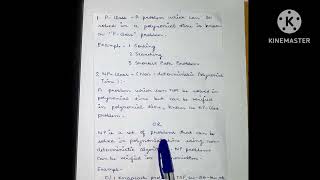 1. P-Class - A problem which can be
solved in a polynomial time is known
as "P-Class" problem.
Example - 1 Sorting
2 Searching
3 Shortest Path Problem
2. NP-Class - (Non-deterministic Polynomial
Time) :-
A problem which can not be solved in
polynomial time but can be verified
in polynomial time, known as NP-class
problem.
OR
NP is a set of problems that can be
solve in polynomial time using non
deterministic algorithm. NP problems
can be verified in
Example -
KINEMASTER